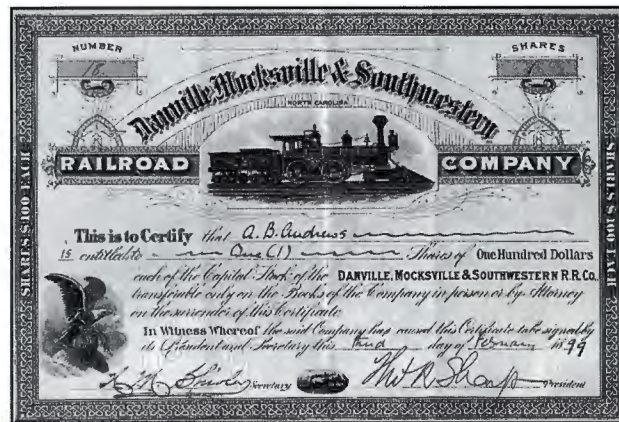 NUMBER
18
SHARES
Danville, Mocksville & Southwestern
NORTH CAROLINA
RAILROAD COMPANY
SHARES $100 EACH
SHARES $100 EACH
This is to Certify that A. B. Andrews
is entitled to One (1) Shares of One Hundred Dollars
each of the Capital Stock of the DANVILLE, MOCKSVILLE & SOUTHWESTERN R.R. Co.
transferable only on the Books of the Company in person or by Attorney
on the surrender of this Certificate.
In Witness Whereof the said Company has caused this Certificate to be signed by
its President and Secretary this day of February 1899
Secretary President